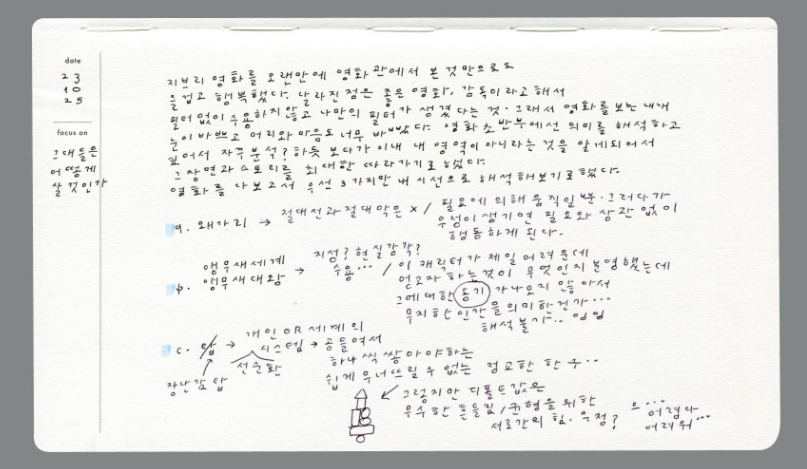 date
23
10
25
focus on
그대들은
어떻게
살 것인가
지브리 영화를 오랜만에 영화관에서 본 것만으로도
즐겁고 행복했다. 달라진점은 좋은 영화, 감독이라고 해서
필터 없이 수용하지 않고 나만의 필터가 생겼다는 것. 그래서 영화를 보는 내내
눈이 바쁘고 머리와 마음도 너무 바빴다. 영화 초반부에선 의미를 해석하고
싶어서 자꾸 분석? 하듯 보다가 이내 내 영역이 아니라는 것을 알게되어서
그 장면과 스토리를 최대한 따라가기로 했다.
영화를 다 보고서 우선 3가지만 내 시선으로 해석해보기로 했다.
a. 왜가리 → 절대선과 절대악은 x / 필요에 의해 움직일 뿐. 그러다가
우정이 생기면 필요와 상관 없이
행동하게 된다.
b. 앵무새세계
앵무새대왕 → 지성? 현실감각?
수용… / 이 캐릭터가 제일 어려운데
얻고자 하는 것이 무엇인지 분명했는데
그에 대한 동기가 나오지 않아서
무지한 인간을 의미하는건가…
해석불가..
c. 탑 → 개인 OR 세계의
시스템 → 공들여서
선순환
장난감 탑
하나씩 쌓아야하는
쉽게 무너뜨릴 수 없는 정교한 한 구..
그렇지만 디폴트값은
무수한 흔들림 / 균형을 위한
서로간의 힘. 우정?
으…
어렵다
어려워…